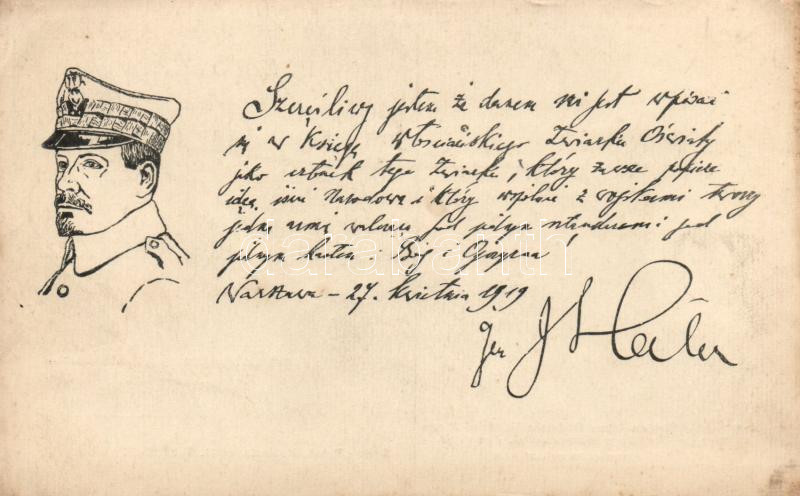 Szczęśliwy jestem że danem mi jest wpisać
się w Księgę Włościańskiego Związku Oświaty
jako członek tego Związku, który zawsze
ideę Narodową i który wspólnie z wojskami tworzy
jedną armię pod jednym sztandarem i pod
jednym hasłem: Bóg i Ojczyzna!
Warszawa – 27. kwietnia 1919
gen J Haller
darabanth